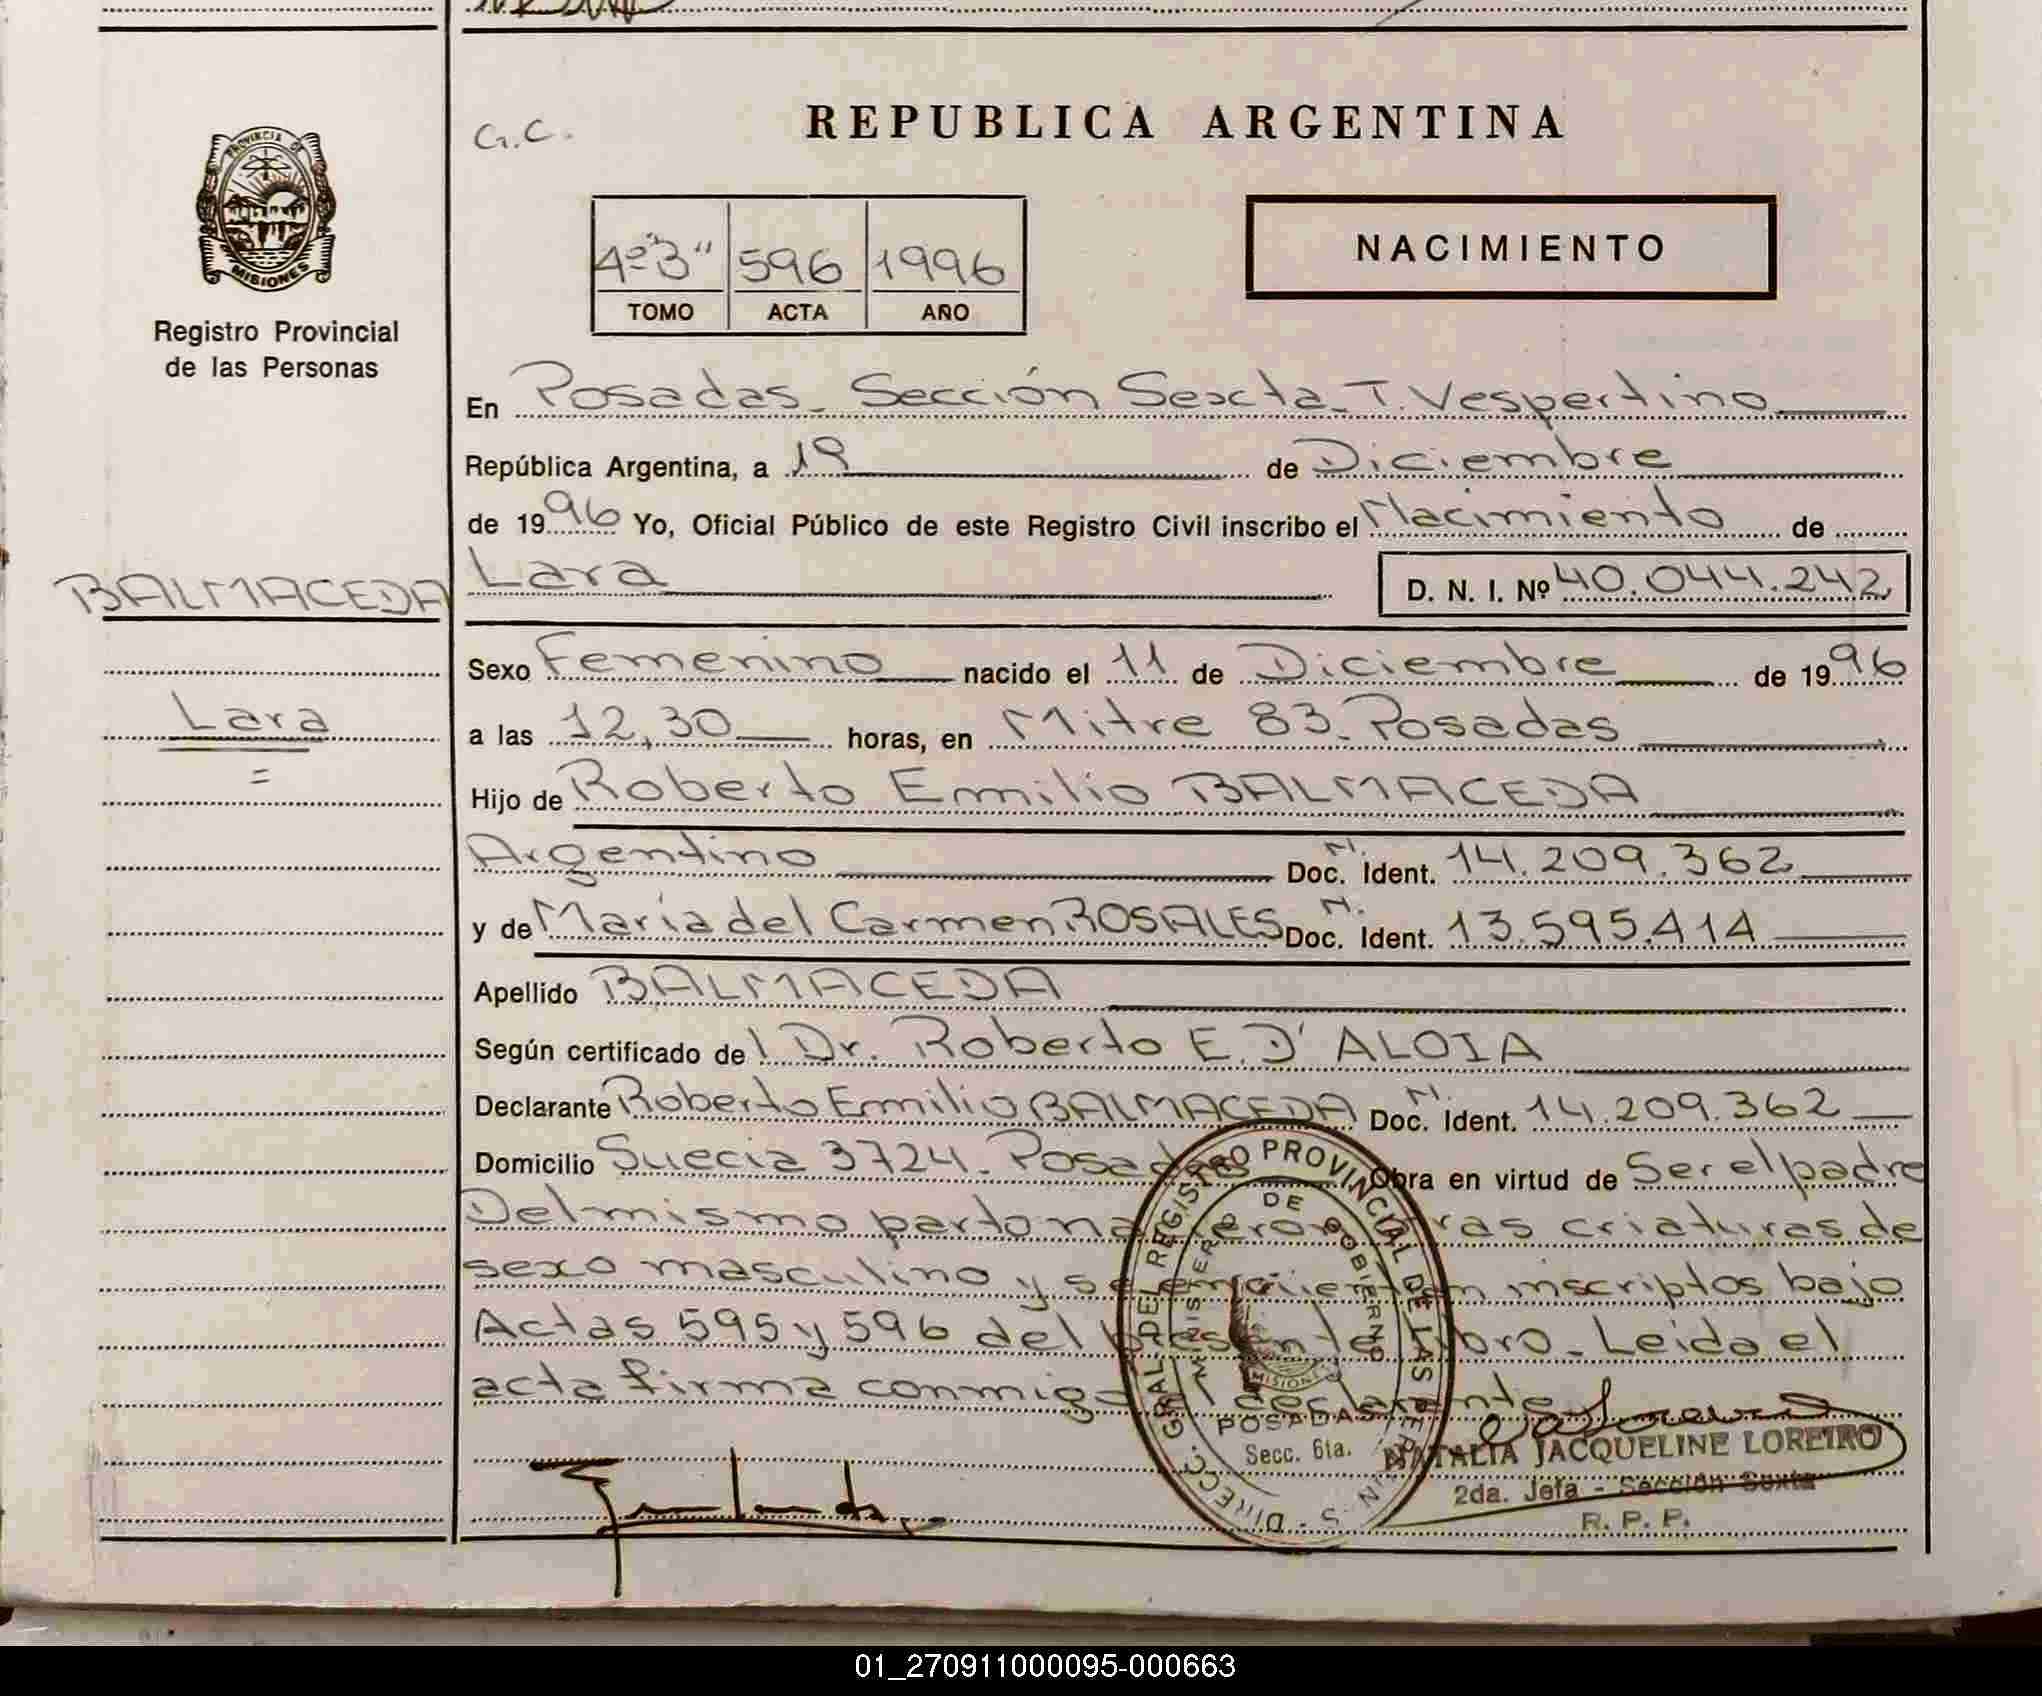 REPUBLICA ARGENTINA
G.C.
PROVINCIA DE
MISIONES
Registro Provincial
de las Personas
4º "3" 596 1996
TOMO ACTA AÑO
NACIMIENTO
En Posadas - Sección Sexta - T. Vespertino
República Argentina, a 19 de Diciembre
de 1996 Yo, Oficial Público de este Registro Civil inscribo el Nacimiento de
BALMACEDA
Lara
Lara D. N. I. Nº 40.044.242
Sexo Femenino nacido el 11 de Diciembre de 1996
a las 12,30 horas, en Mitre 83 - Posadas
Hijo de Roberto Emilio BALMACEDA
Argentino Doc. N. Ident. 14.209.362
y de María del Carmen ROSALES Doc. N. Ident. 13.595.414
Apellido BALMACEDA
Según certificado de l Dr. Roberto E. D'ALOIA
Declarante Roberto Emilio BALMACEDA Doc. N. Ident. 14.209.362
Domicilio Suecia 3724 - Posadas Obra en virtud de Ser el padre
Del mismo parto nacieron otras criaturas de
sexo masculino y se encuentran inscriptos bajo
Actas 595 y 596 del presente libro - Leida el
acta firma conmigo el declarante
DIRECC. GRAL. DEL REGISTRO PROVINCIAL DE LAS PERSONAS
MINISTERIO DE GOBIERNO
MISIONES
POSADAS
Secc. 6ta.
NATALIA JACQUELINE LOREIRO
2da. Jefa - Sección Sexta
R. P. P.
01_270911000095-000663